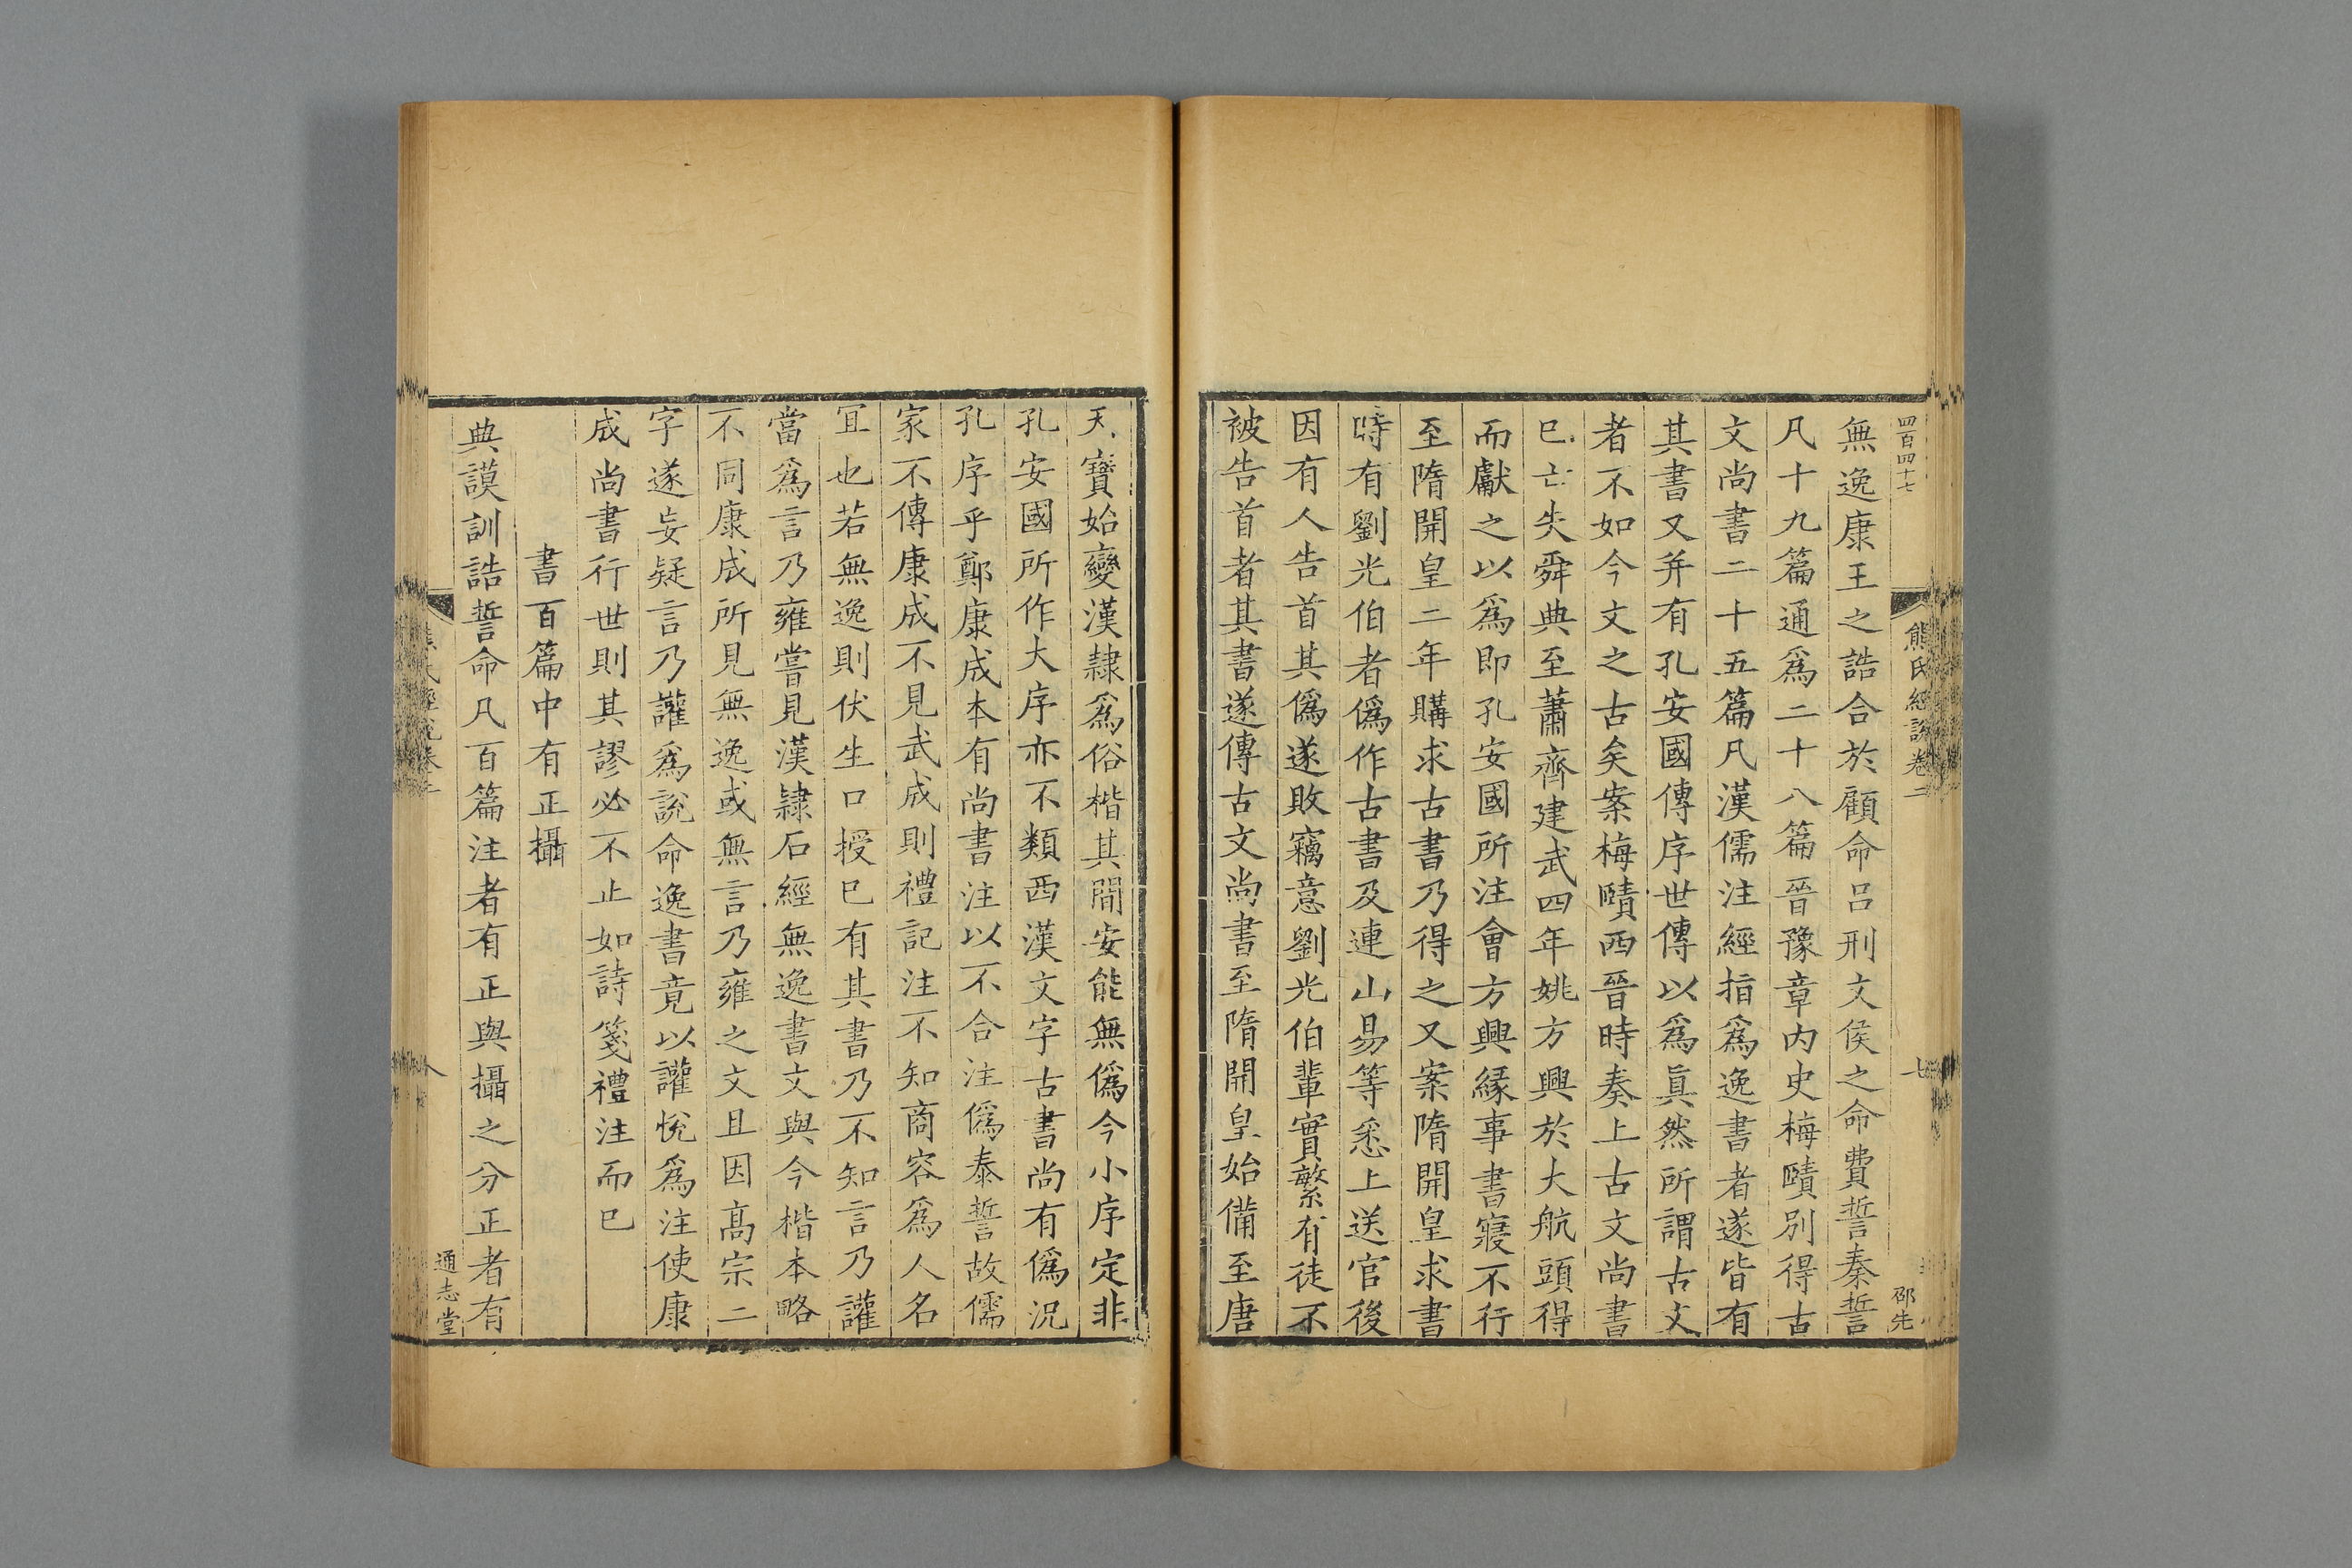 四百四十七
熊氏經說卷二
七
邵先
無逸康王之誥合於顧命呂刑文侯之命費誓秦誓
凡十九篇通爲二十八篇晉豫章內史梅賾別得古
文尚書二十五篇凡漢儒注經指爲逸書者遂皆有
其書又并有孔安國傳序世傳以爲眞然所謂古文
者不如今文之古矣案梅賾西晉時奏上古文尚書
已亡失舜典至蕭齊建武四年姚方興於大航頭得
而獻之以爲即孔安國所注會方興緣事書寢不行
至隋開皇二年購求古書乃得之又案隋開皇求書
時有劉光伯者僞作古書及連山易等悉上送官後
因有人告首其僞遂敗竊意劉光伯輩實繁有徒不
被告首者其書遂傳古文尚書至隋開皇始備至唐
天寶始變漢隷爲俗楷其間安能無僞今小序定非
孔安國所作大序亦不類西漢文字古書尚有僞況
孔序乎鄭康成本有尚書注以不合注僞泰誓故儒
家不傳康成不見武成則禮記注不知商容爲人名
冝也若無逸則伏生口授已有其書乃不知言乃讙
當爲言乃雍嘗見漢隷石經無逸書文與今楷本略
不同康成所見無逸或無言乃雍之文且因高宗二
字遂妄疑言乃讙爲說命逸書竟以讙悅爲注使康
成尚書行世則其謬必不止如詩箋禮注而已
書百篇中有正攝
典謨訓誥誓命凡百篇注者有正與攝之分正者有
八
通志堂